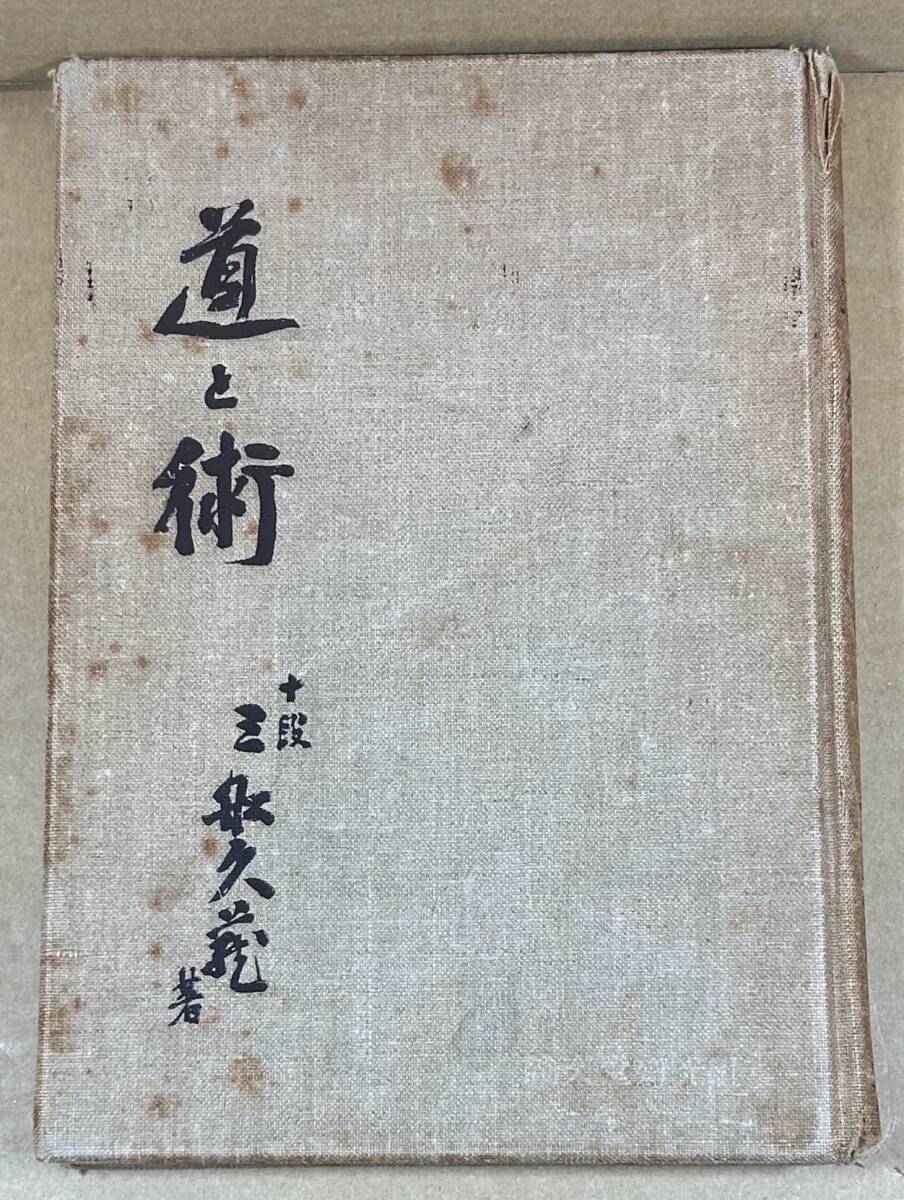 道と術
十段
三船久蔵
著